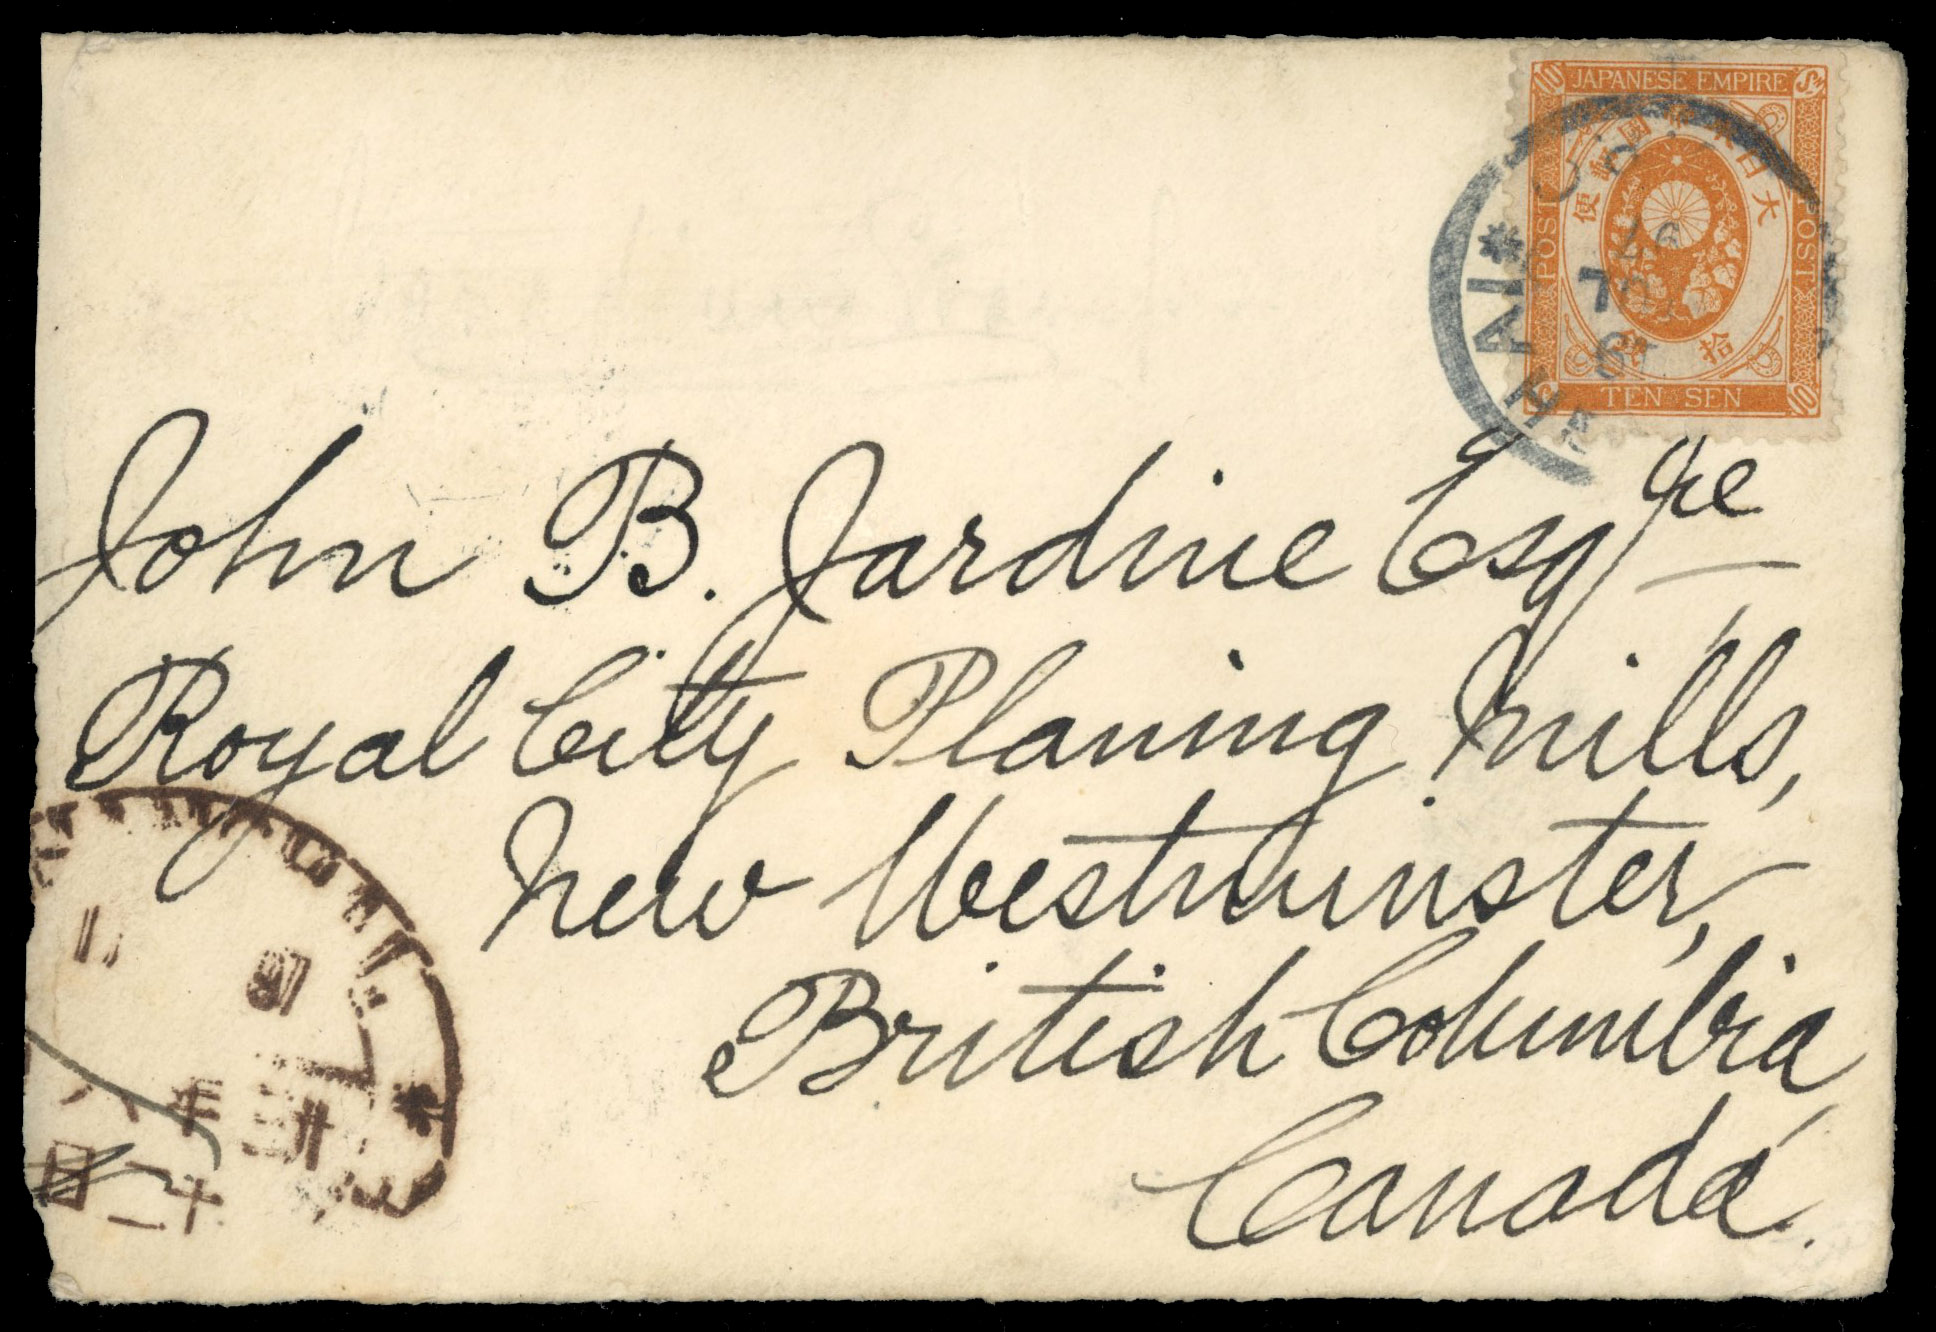 10 JAPANESE EMPIRE Sn
大日本帝國郵便
POST
POST
拾銭
10 TEN SEN 10
John B. Jardine Esqre
Royal City Planing Mills,
New Westminster,
British Columbia
Canada.
年
八
十二日